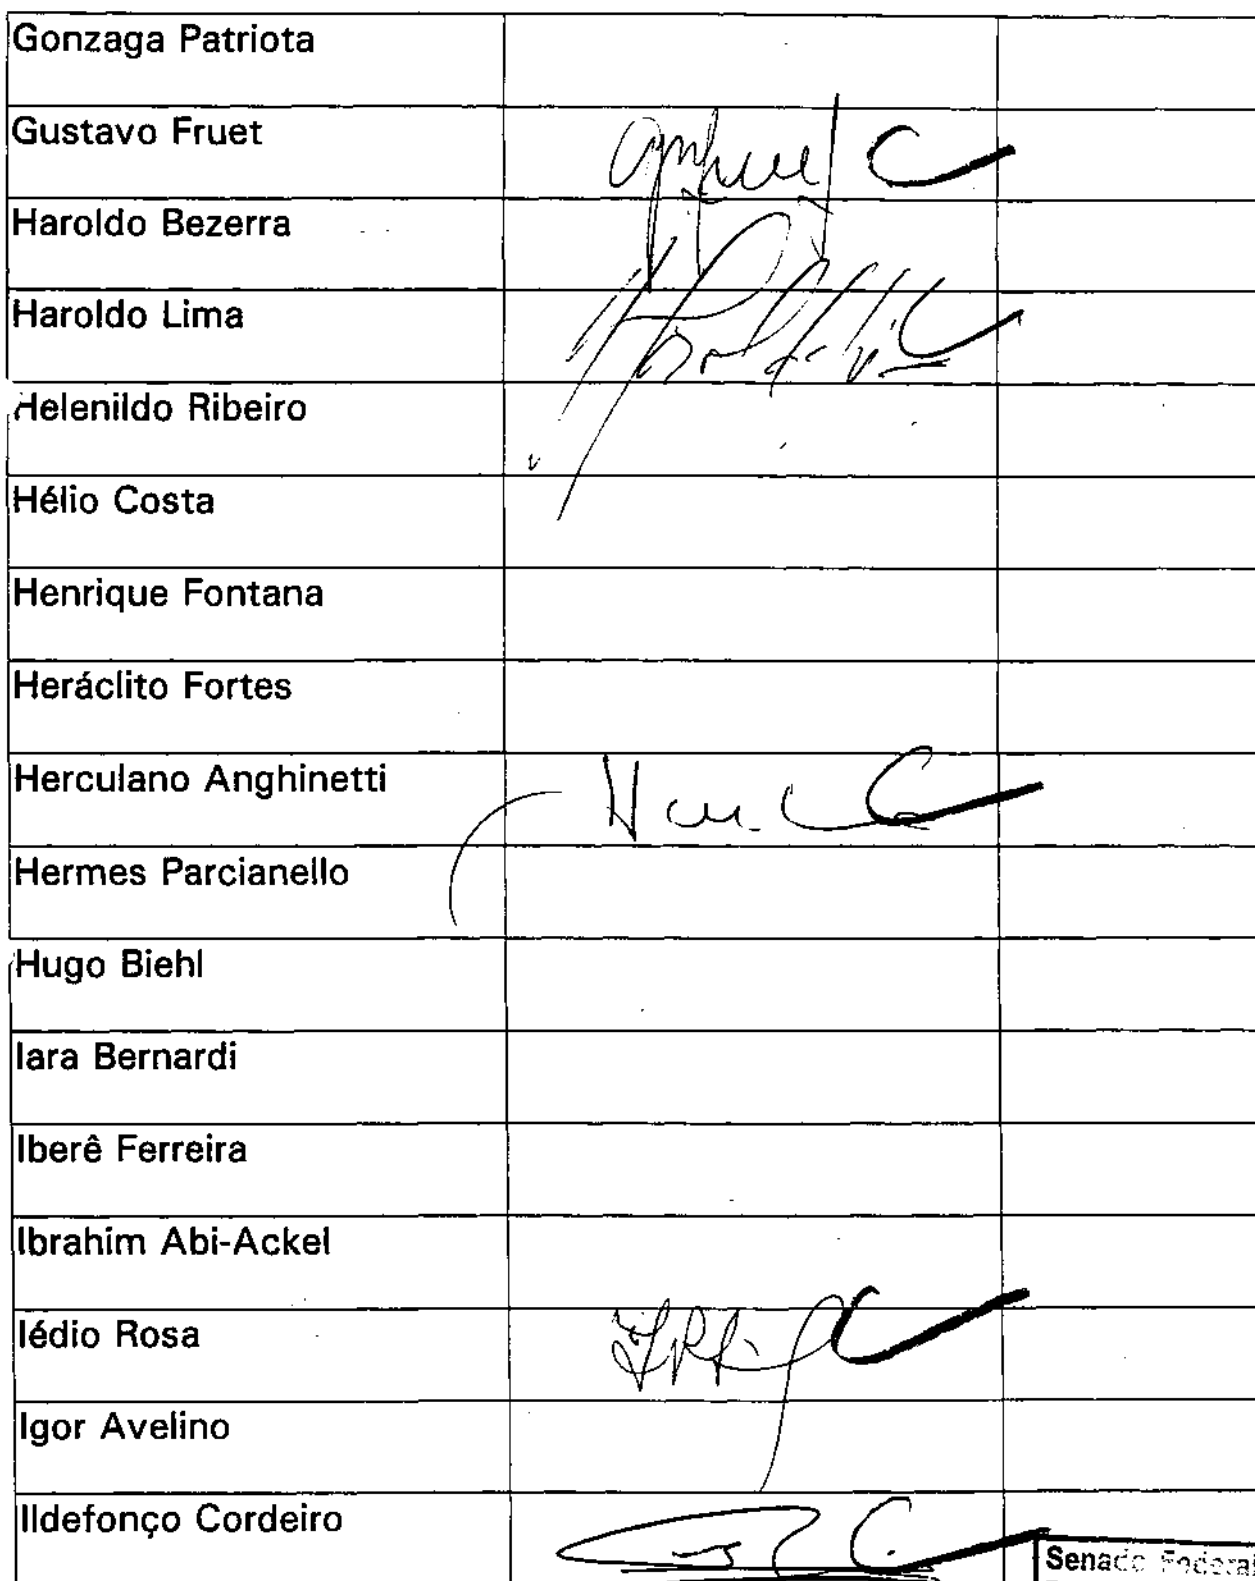 Gonzaga Patriota
Gustavo Fruet
Haroldo Bezerra
Haroldo Lima
Helenildo Ribeiro
Hélio Costa
Henrique Fontana
Heráclito Fortes
Herculano Anghinetti
Hermes Parcianello
Hugo Biehl
Iara Bernardi
Iberê Ferreira
Ibrahim Abi-Ackel
Iédio Rosa
Igor Avelino
Ildefonço Cordeiro
Senado Federal